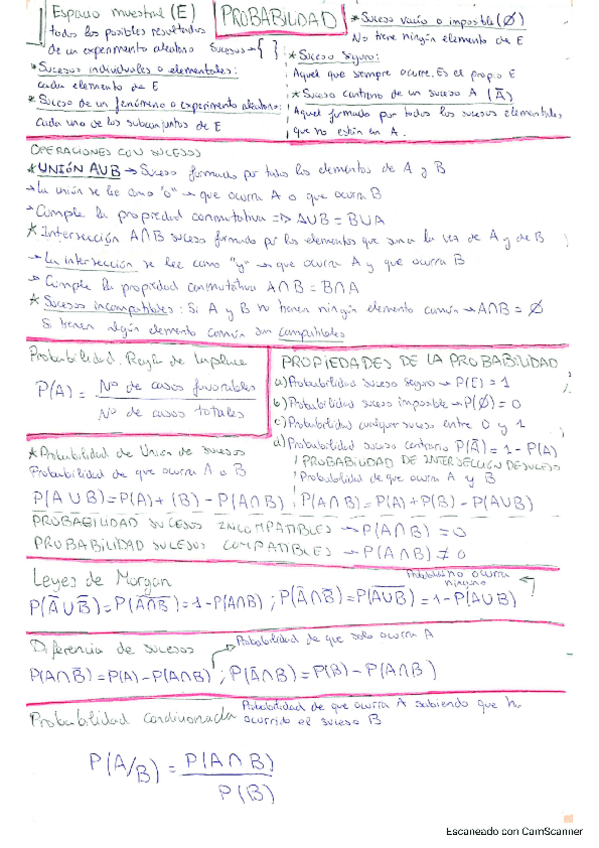 Espacio muestral (E)
todos los posibles resultados
de un experimento aleatorio Sucesos → { }
* Sucesos individuales o elementales:
cada elemento de E
* Suceso de un fenómeno o experimento aleatorio:
Cada uno de los subconjuntos de E
PROBABILIDAD
* Suceso vacío o imposible (∅)
No tiene ningún elemento de E
* Suceso seguro:
Aquel que siempre ocurre. Es el propio E
* Suceso contrario de un suceso A (A̅)
Aquel formado por todos los sucesos elementales
que no están en A.
OPERACIONES CON SUCESOS
* UNIÓN AUB → Suceso formado por todos los elementos de A y B
→ La unión se lee como "o" → que ocurra A o que ocurra B
→ Cumple la propiedad conmutativa => AUB = BUA
* Intersección A∩B suceso formado por los elementos que son a la vez de A y de B
→ La intersección se lee como "y" → que ocurra A y que ocurra B
→ Cumple la propiedad conmutativa A∩B = B∩A
* Sucesos incompatibles: Si A y B no tienen ningún elemento común → A∩B = ∅
Si tienen algún elemento común son compatibles
Probabilidad. Regla de Laplace
P(A) = Nº de casos favorables
Nº de casos totales
PROPIEDADES DE LA PROBABILIDAD
a) Probabilidad suceso seguro → P(E) = 1
b) Probabilidad suceso imposible → P(∅) = 0
c) Probabilidad cualquier suceso entre 0 y 1
d) Probabilidad suceso contrario P(A̅) = 1 - P(A)
* Probabilidad de Unión de sucesos
Probabilidad de que ocurra A o B
P(A U B) = P(A) + (B) - P(A∩B)
PROBABILIDAD DE INTERSECCIÓN DE SUCESOS
Probabilidad de que ocurra A y B
P(A∩B) = P(A) + P(B) - P(AUB)
PROBABILIDAD SUCESOS INCOMPATIBLES → P(A∩B) = 0
PROBABILIDAD SUCESOS COMPATIBLES → P(A∩B) ≠ 0
Leyes de Morgan
Probabilidad no ocurra
ninguno
P(A̅ U B̅) = P(A̅∩̅B̅) = 1 - P(A∩B) ; P(A̅ ∩ B̅) = P(A̅U̅B̅) = 1 - P(AUB)
Diferencia de sucesos
Probabilidad de que solo ocurra A
P(A∩B̅) = P(A) - P(A∩B) ; P(A̅∩B) = P(B) - P(A∩B)
Probabilidad condicionada
Probabilidad de que ocurra A sabiendo que ha
ocurrido el suceso B
P(A/B) = P(A∩B)
P(B)
Escaneado con CamScanner